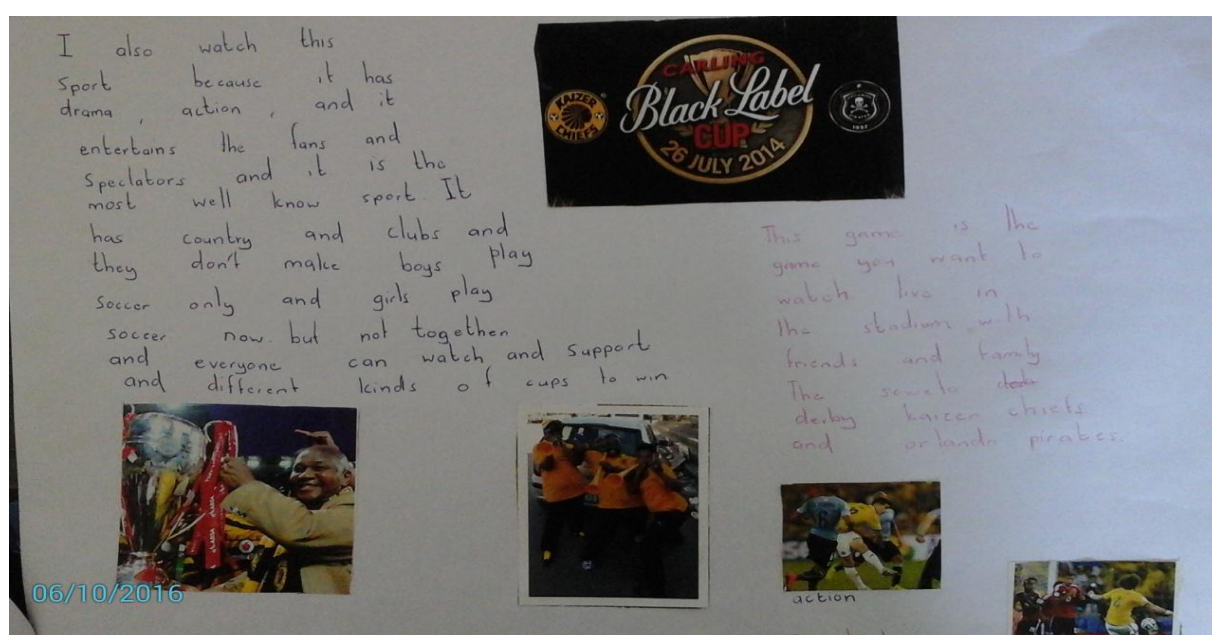 I also watch this
sport because it has
drama, action, and it
entertains the fans and
Speclators and it is the
most well know sport. It
has country and clubs and
they don't make boys play
soccer only and girls play
soccer now. but not together
and everyone can watch and support
and different kinds of cups to win
CARLING
Black Label
CUP
26 JULY 2014
KAIZER
CHIEFS
This game is the
game you want to
watch live in
the stadium with
friends and family
The soweto
derby kaizer chiefs
and orlando pirates.
action
06/10/2016